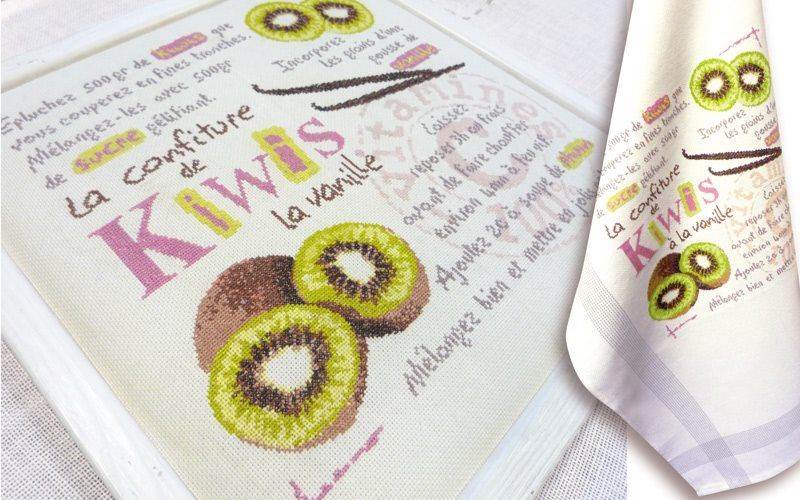 Epluchez 500gr de Kiwis que
vous couperez en fines tranches.
Mélangez-les avec 500gr
de sucre gélifiant.
Incorporez
les grains d'une
gousse de
vanille
La confiture
de
Kiwis
la vanille
Vitamines
C
Laissez
reposer 3h en frais
avant de faire chauffer
environ
Ajoutez 20 à 30gr de
Mélangez bien et mettre en
500gr de Kiwis que
couperez en fines tranches.
Mélangez-les avec 500gr
de sucre gélifiant.
Incorporez
les grains d'une
gousse de
vanille
La confiture
de
Kiwis
à la vanille
Vitamines
reposer 3h
avant de faire
environ
Ajoutez 20 à
Mélangez bien et mettre